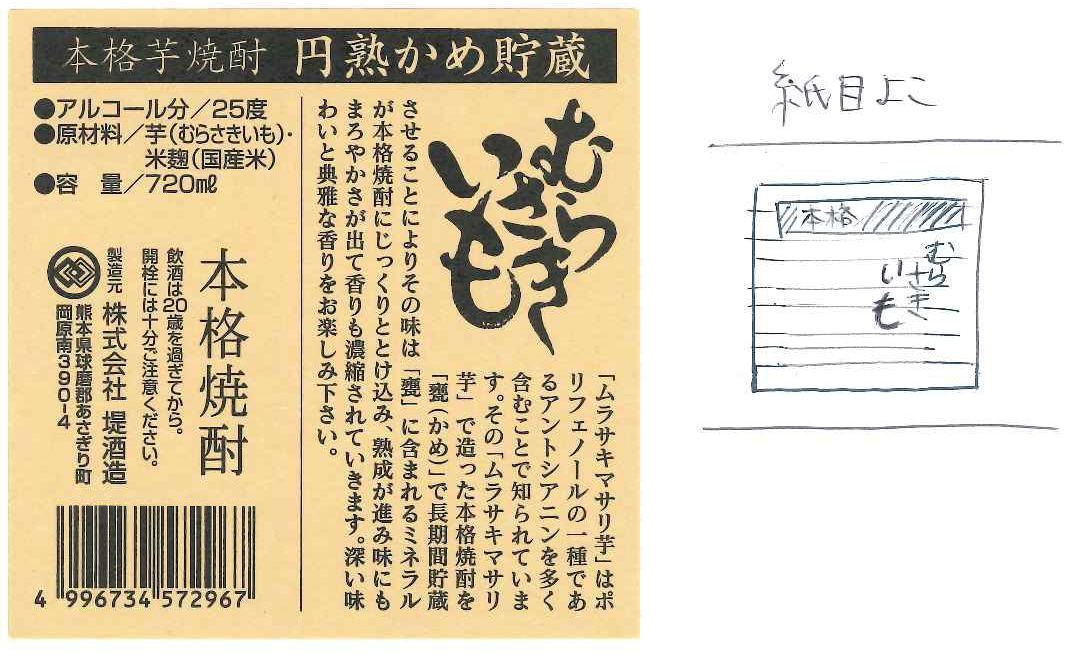 本格芋焼酎 円熟かめ貯蔵
●アルコール分／25度
●原材料／芋(むらさきいも)・
米麹(国産米)
●容 量／720㎖
むらさき
いも
「ムラサキマサリ芋」はポ
リフェノールの一種であ
るアントシアニンを多く
含むことで知られていま
す。その「ムラサキマサリ
芋」で造った本格焼酎を
「甕(かめ)」で長期間貯蔵
させることによりその味は「甕」に含まれるミネラル
が本格焼酎にじっくりととけ込み、熟成が進み味にも
まろやかさが出て香りも濃縮されていきます。深い味
わいと典雅な香りをお楽しみ下さい。
本格焼酎
飲酒は20歳を過ぎてから。
開栓には十分ご注意ください。
製造元 株式会社 堤酒造
熊本県球磨郡あさぎり町
岡原南390-4
4 996734 572967
紙目よこ
本格
むらさき
いも